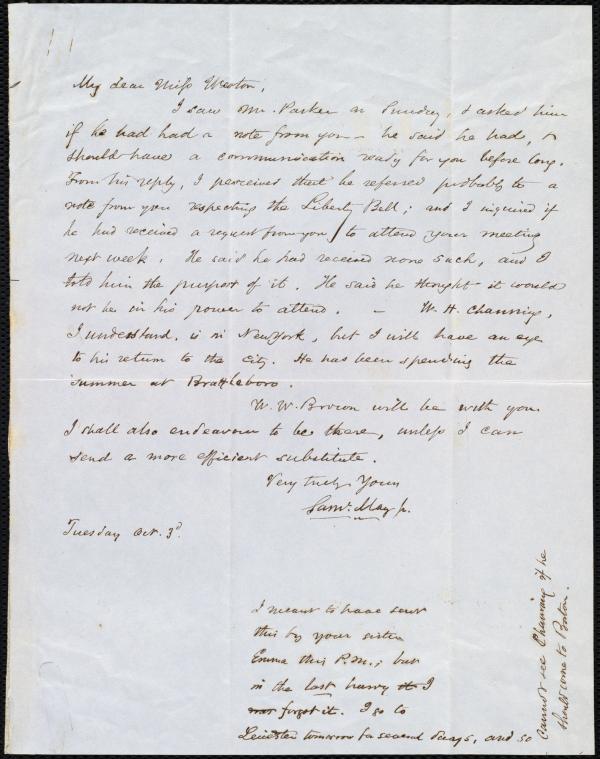 My dear Miss Weston,
I saw Mr. Parker on Sunday, & asked him
if he had had a note from you – he said he had, &
should have a communication ready for you before long.
From his reply, I perceived that he referred probably to a
note from you respecting the Liberty Bell; and I inquired if
he had received a request from you to attend your meeting
next week. He said he had received none such, and I
told him the purport of it. He said he thought it would
not be in his power to attend. – W. H. Channing,
I understand, is in New York, but I will have an eye
to his return to the city. He has been spending the
summer at Brattleboro.
W. W. Brown will be with you.
I shall also endeavour to be there, unless I can
send a more efficient substitute.
Very truly Yours
Saml. May Jr.
Tuesday Oct. 3d.
I meant to have sent
this by your sister
Emma this P.M.; but
in the last hurry I
forgot it. I go to
Leicester tomorrow for several days, and so
cannot see Channing if he
should come to Boston.